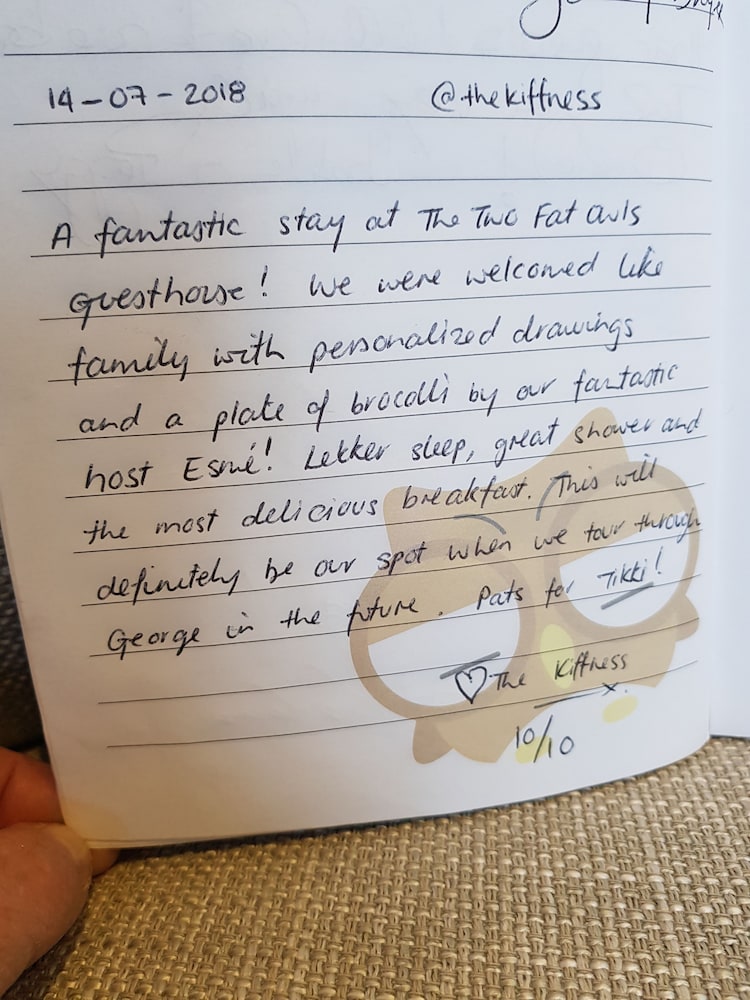 14-07-2018 @thekiffness
A fantastic stay at The Two Fat Owls
Guesthouse! We were welcomed like
family with personalized drawings
and a plate of brocolli by our fantastic
host Esmé! Lekker sleep, great shower and
the most delicious breakfast. This will
definitely be our spot when we tour through
George in the future. Pats for Tikki!
♡ The Kiffness x.
10/10